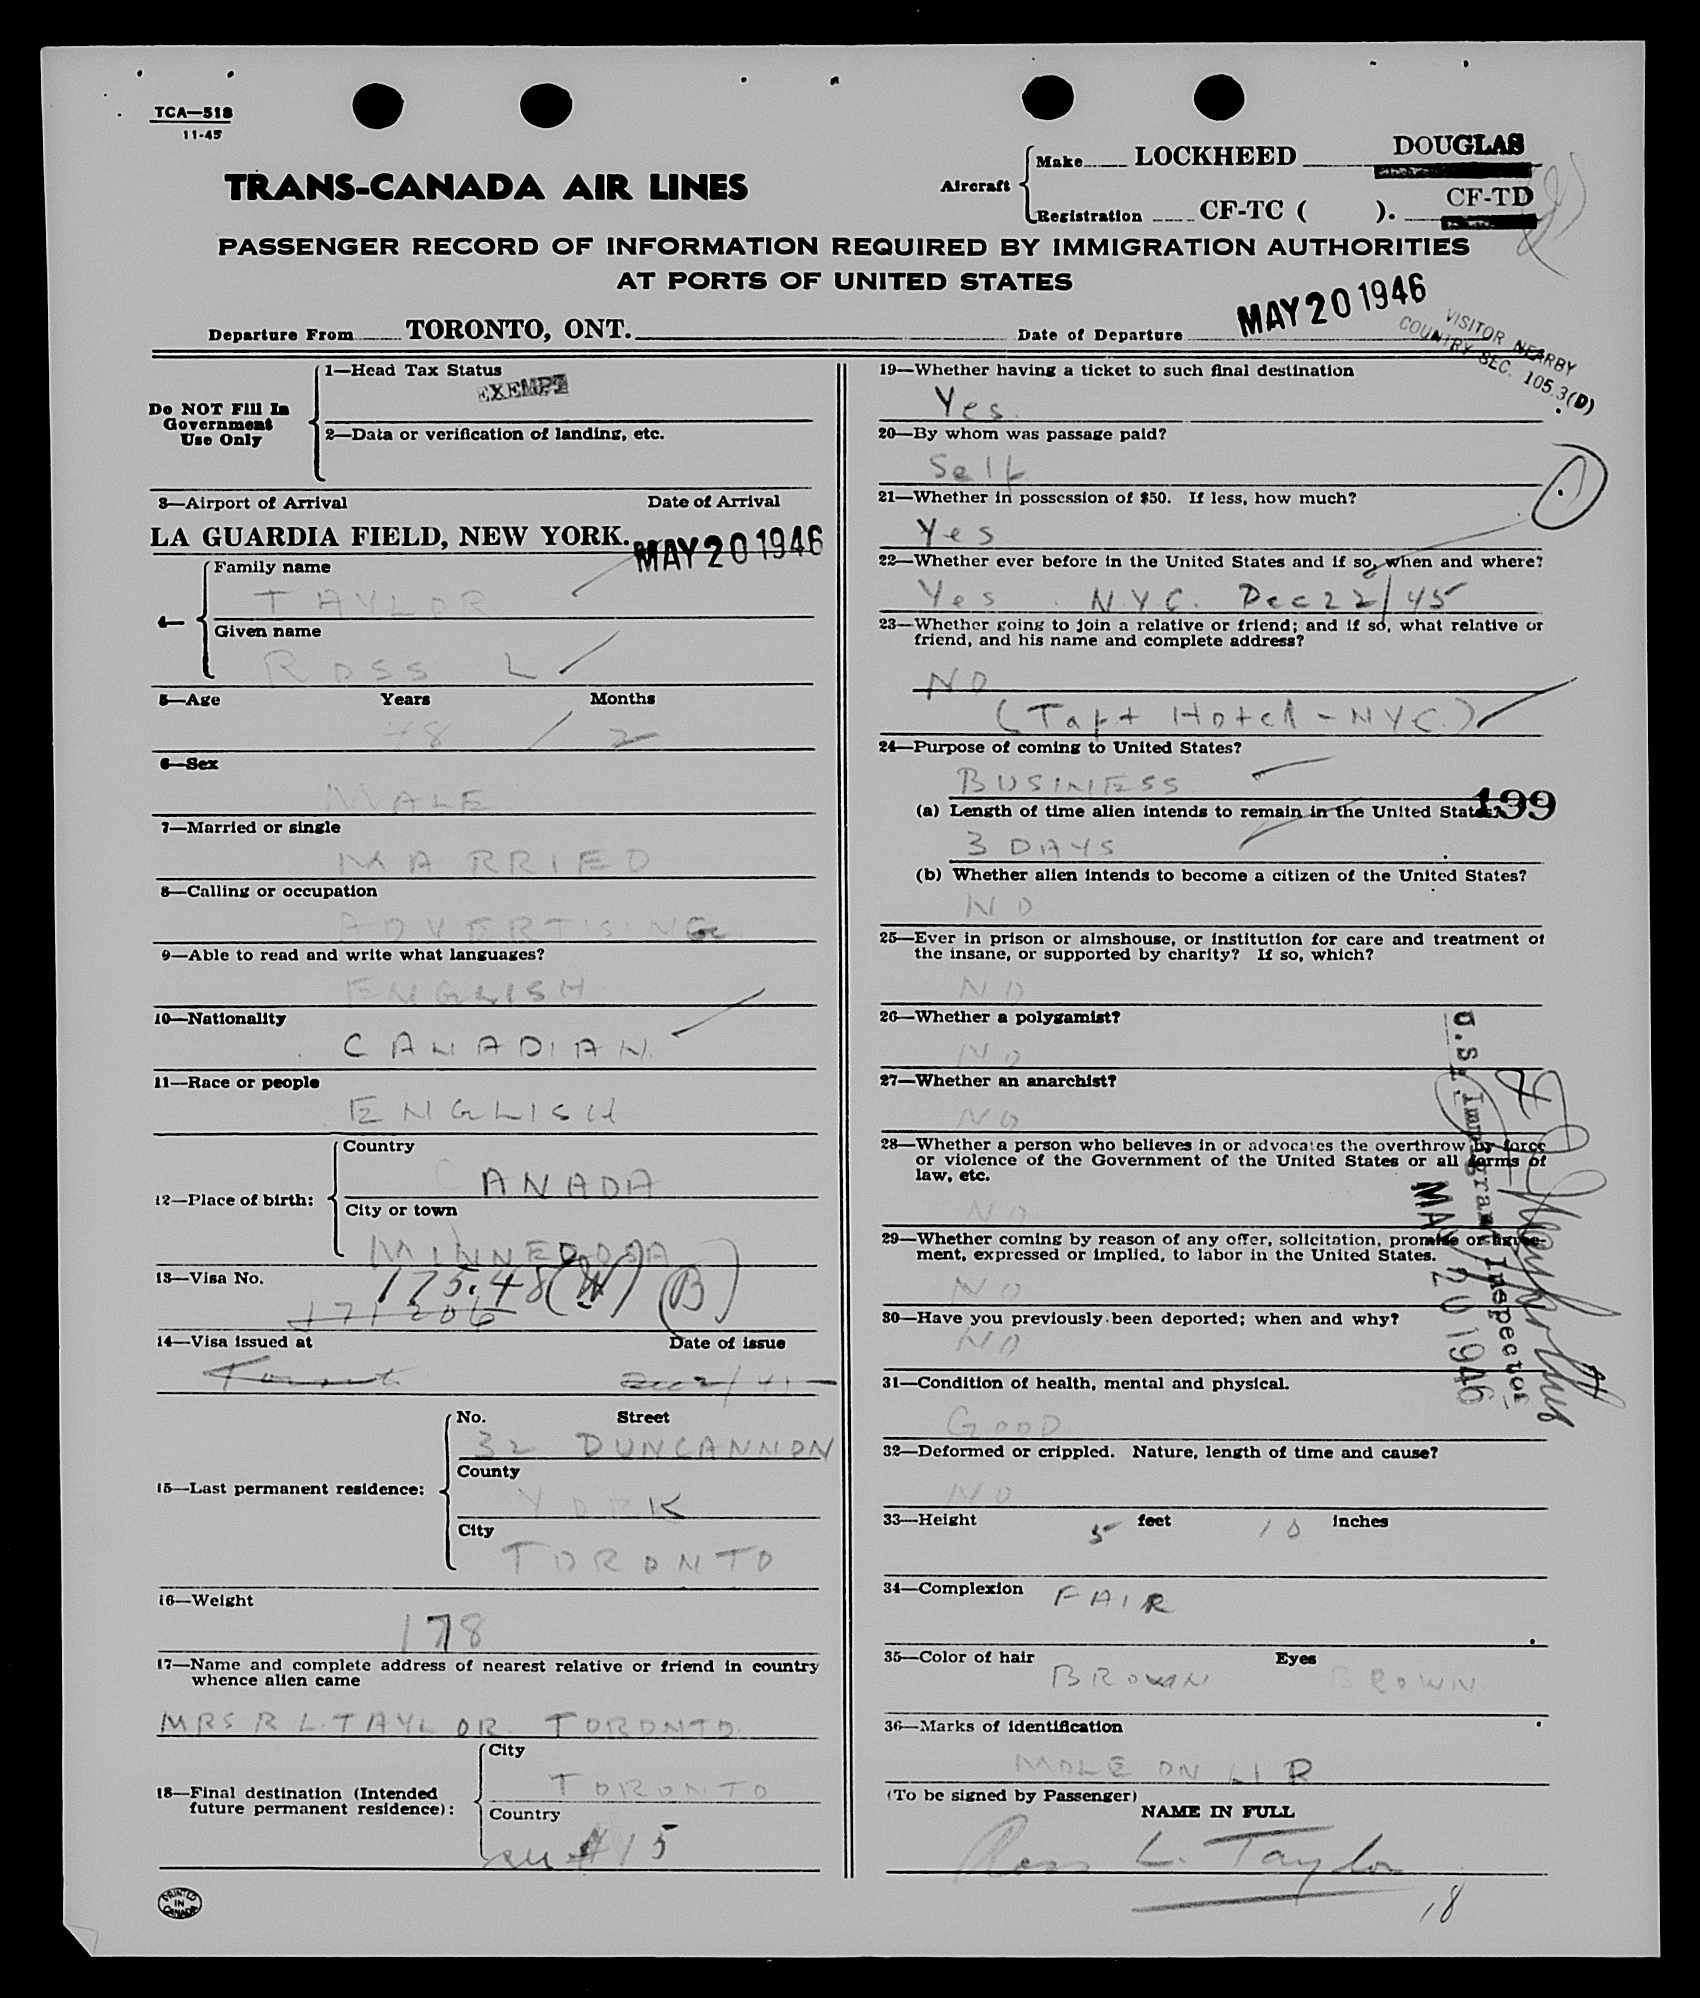 TCA—518
11-45
TRANS-CANADA AIR LINES
Aircraft
Make LOCKHEED DOUGLAS
Registration CF-TC ( ). CF-TD
PASSENGER RECORD OF INFORMATION REQUIRED BY IMMIGRATION AUTHORITIES
AT PORTS OF UNITED STATES
Departure From TORONTO, ONT. Date of Departure MAY 20 1946
VISITOR NEARBY
COUNTRY SEC. 105.3(D)
Do NOT Fill In
Government
Use Only
1—Head Tax Status
EXEMPT
2—Data or verification of landing, etc.
3—Airport of Arrival Date of Arrival
LA GUARDIA FIELD, NEW YORK. MAY 20 1946
4—
Family name
TAYLOR
Given name
ROSS L
5—Age Years Months
48 2
6—Sex
MALE
7—Married or single
MARRIED
8—Calling or occupation
ADVERTISING
9—Able to read and write what languages?
ENGLISH
10—Nationality
CANADIAN
11—Race or people
ENGLISH
12—Place of birth:
Country
CANADA
City or town
MINNEDOSA
13—Visa No.
175.48 (W) (B)
171206
14—Visa issued at Date of issue
Toronto Dec 2/45
15—Last permanent residence:
No. Street
32 DUNCANNON
County
YORK
City
TORONTO
16—Weight
178
17—Name and complete address of nearest relative or friend in country
whence alien came
MRS R L. TAYLOR. TORONTO.
18—Final destination (Intended
future permanent residence):
City
TORONTO
Country
see #15
PRINTED
IN
CANADA
19—Whether having a ticket to such final destination
Yes.
20—By whom was passage paid?
Self
21—Whether in possession of $50. If less, how much?
Yes
22—Whether ever before in the United States and if so, when and where?
Yes. N.Y.C. Dec 22/45
23—Whether going to join a relative or friend; and if so, what relative or
friend, and his name and complete address?
NO
(Taft Hotel - NYC.)
24—Purpose of coming to United States?
BUSINESS
199
(a) Length of time alien intends to remain in the United States?
3 DAYS
(b) Whether alien intends to become a citizen of the United States?
NO
25—Ever in prison or almshouse, or institution for care and treatment of
the insane, or supported by charity? If so, which?
NO
26—Whether a polygamist?
NO
27—Whether an anarchist?
NO
28—Whether a person who believes in or advocates the overthrow by force
or violence of the Government of the United States or all forms of
law, etc.
NO
29—Whether coming by reason of any offer, solicitation, promise or agree-
ment, expressed or implied, to labor in the United States.
NO
30—Have you previously been deported; when and why?
NO
U.S. Immigrant Inspector
MAY 20 1946
31—Condition of health, mental and physical.
GOOD
32—Deformed or crippled. Nature, length of time and cause?
NO
33—Height 5 feet 10 inches
34—Complexion FAIR
35—Color of hair BROWN Eyes BROWN
36—Marks of identification
MOLE ON LIP
(To be signed by Passenger)
NAME IN FULL
Ross L. Taylor
18